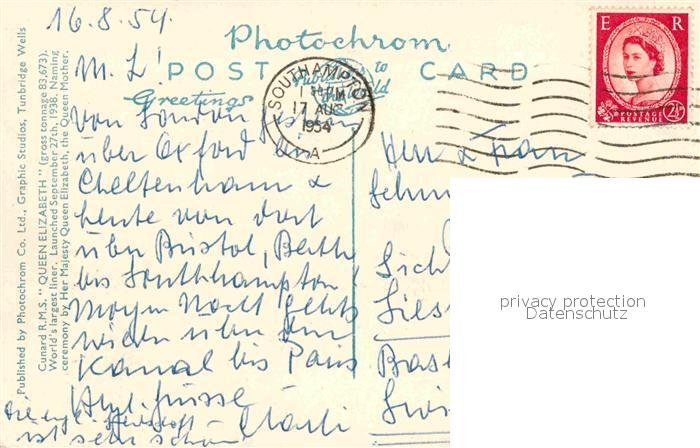 16.8.54.
Published by Photochrom Co. Ltd., Graphic Studios, Tunbridge Wells
Cunard R.M.S. "QUEEN ELIZABETH" (gross tonnage 83,673).
World's largest liner. Launched September 27th, 1938. Naming
ceremony by Her Majesty Queen Elizabeth, the Queen Mother.
Photochrom
POST CARD
Greetings
Published
to
World
SOUTHAMPTON
17 AUG
1954
A
E R
POSTAGE
REVENUE
2½D
M. L!
von London gestern
über Oxford
Cheltenham &
heute von dort
über Bristol, Bath
bis Southhampton!
Morgen Nacht gehts
wieder über den
Kanal bis Paris
Herrn & Frau
Basel
privacy protection
Datenschutz
Die engl. Landschaft
ist sehr schön